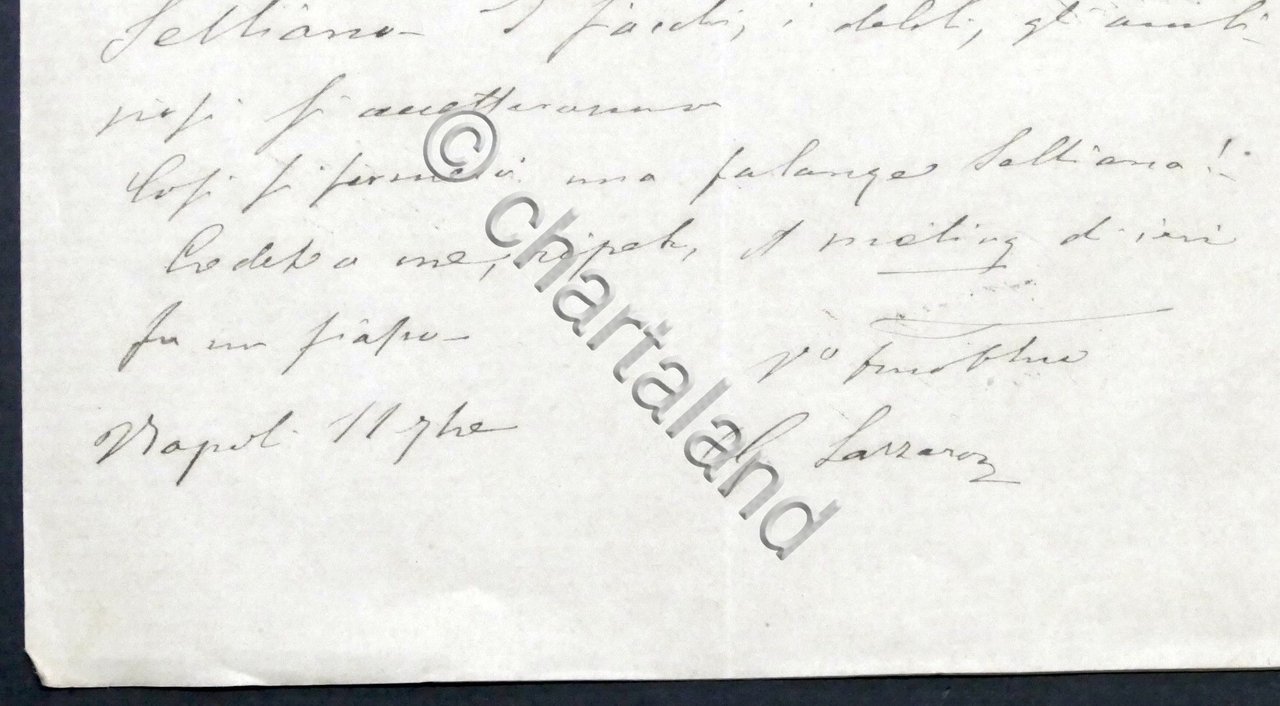 Selliano - I fiacchi, i deboli, gli ambi-
ziosi si accetteranno
Così si formerà una falange Selliana!
Credete a me, ripeto, il meeting d'ieri
fu un fiasco -
Napoli 11 7bre
Lazzaroni
© chartaland